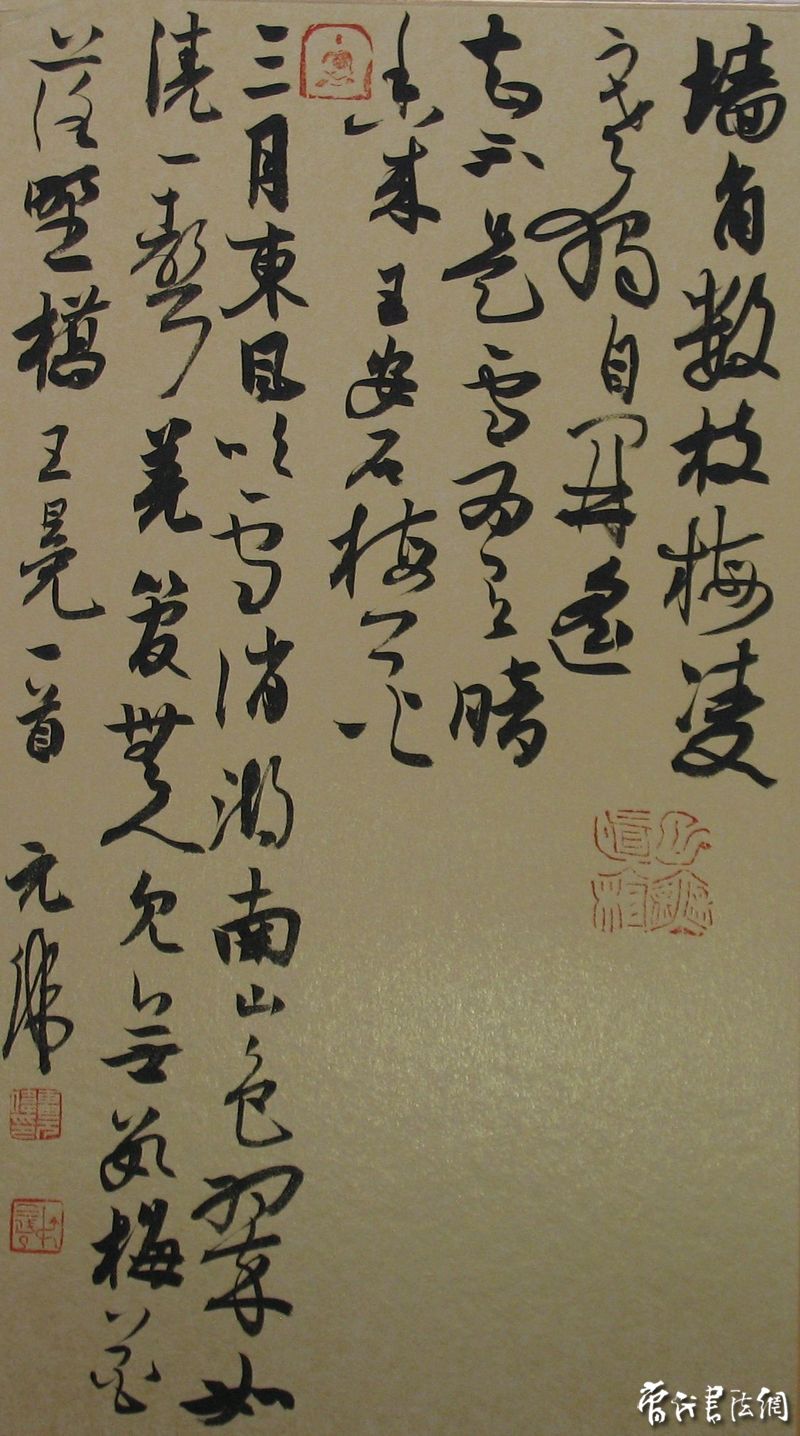 墙角数枝梅凌
寒独自開遥
知不是雪為有暗
香来 王安石梅花
三月東風吹雪消湖南山色翠如
澆一聲羌管無人見無数梅花
落野橋 王冕一首 元
書法網